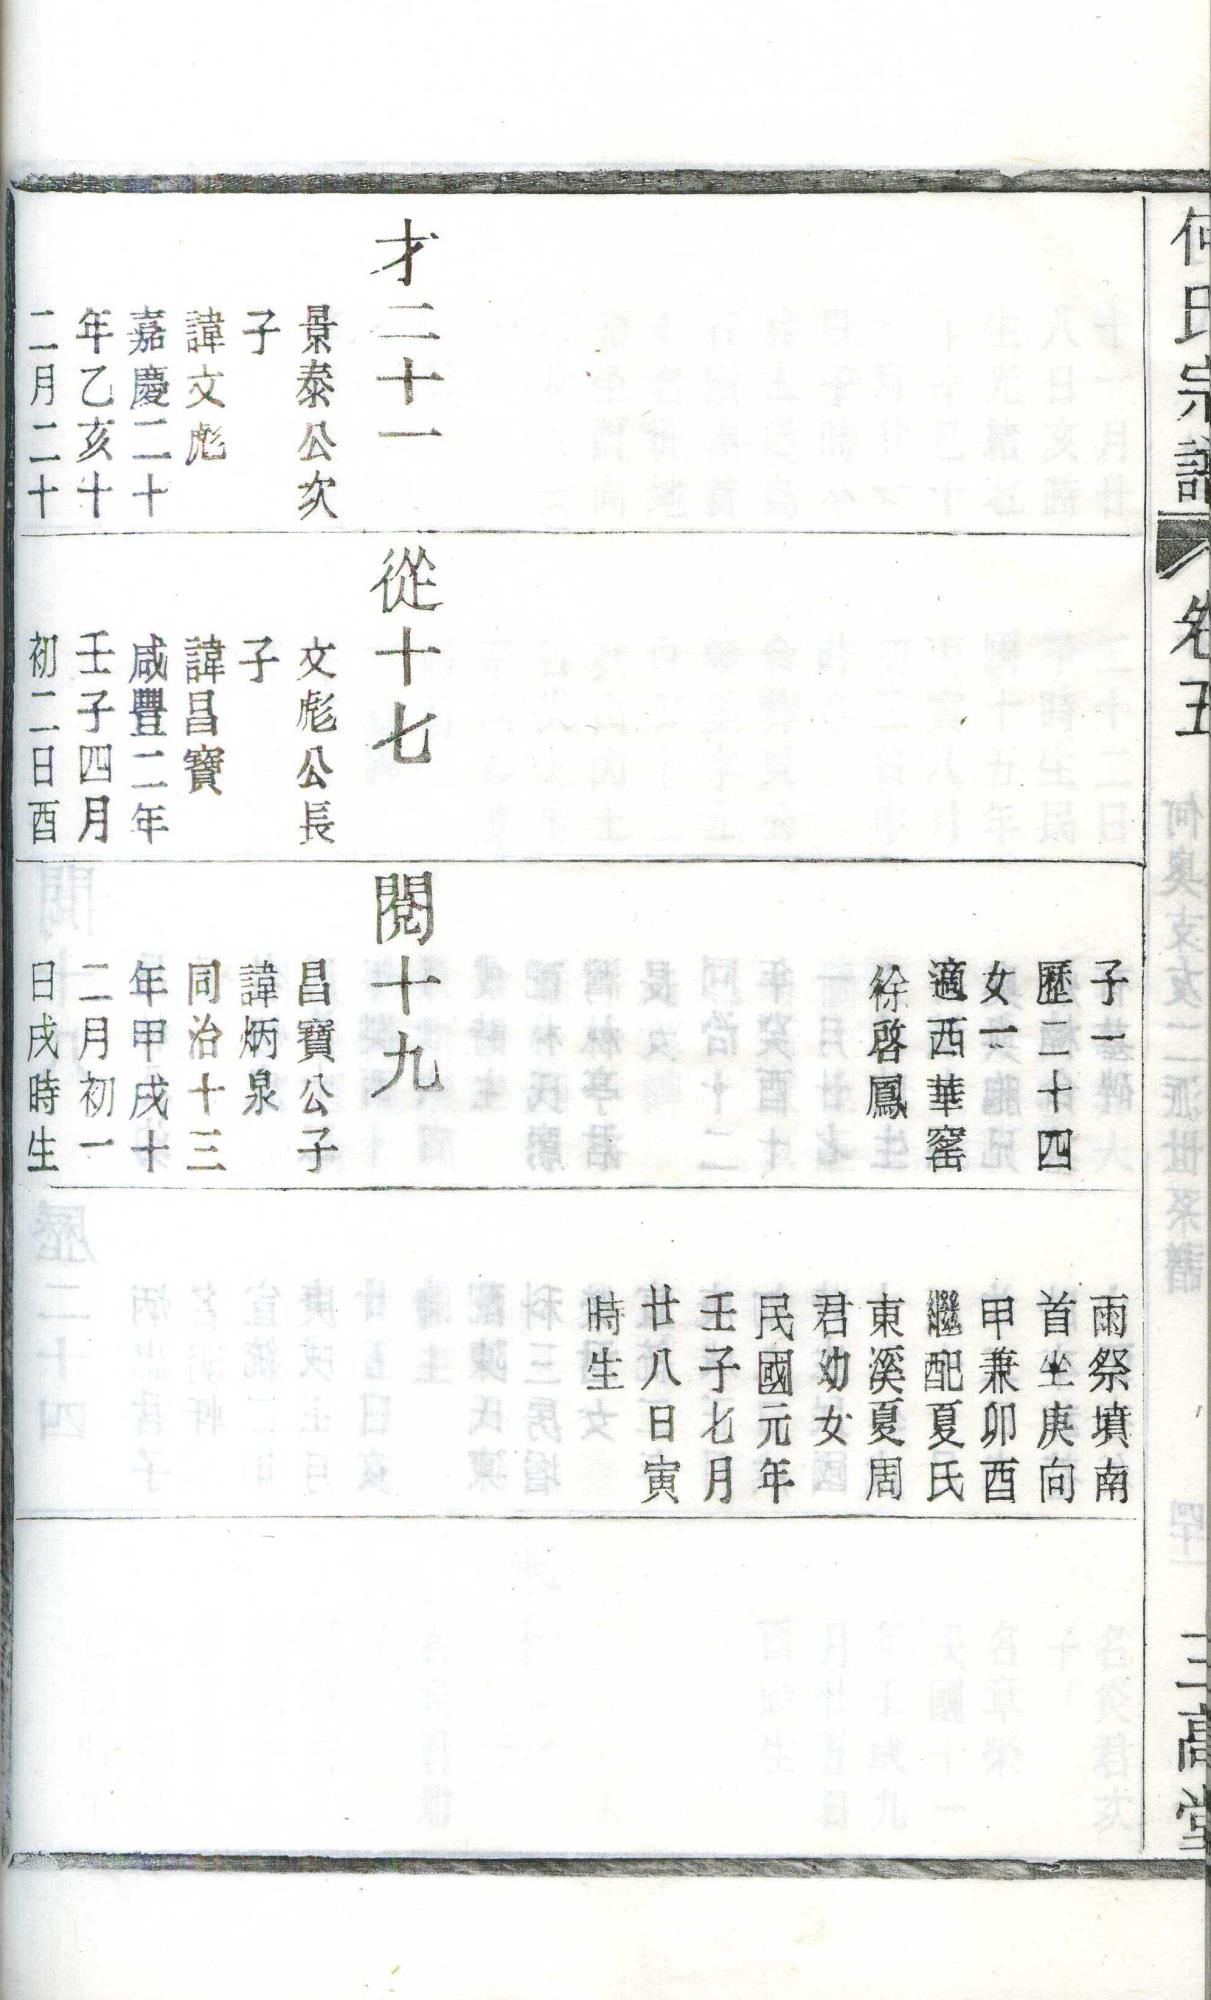 何氏宗譜
卷五
三高堂
才二十一
景泰公次
子
諱文彪
嘉慶二十
年乙亥十
二月二十
從十七
文彪公長
子
諱昌寶
咸豐二年
壬子四月
初二日酉
子一
歷二十四
女一
適西華窰
徐啓鳳
閱十九
昌寶公子
諱炳泉
同治十三
年甲戌十
二月初一
日戌時生
雨祭墳南
首坐庚向
甲兼卯酉
繼配夏氏
東溪夏周
君幼女
民國元年
壬子七月
廿八日寅
時生